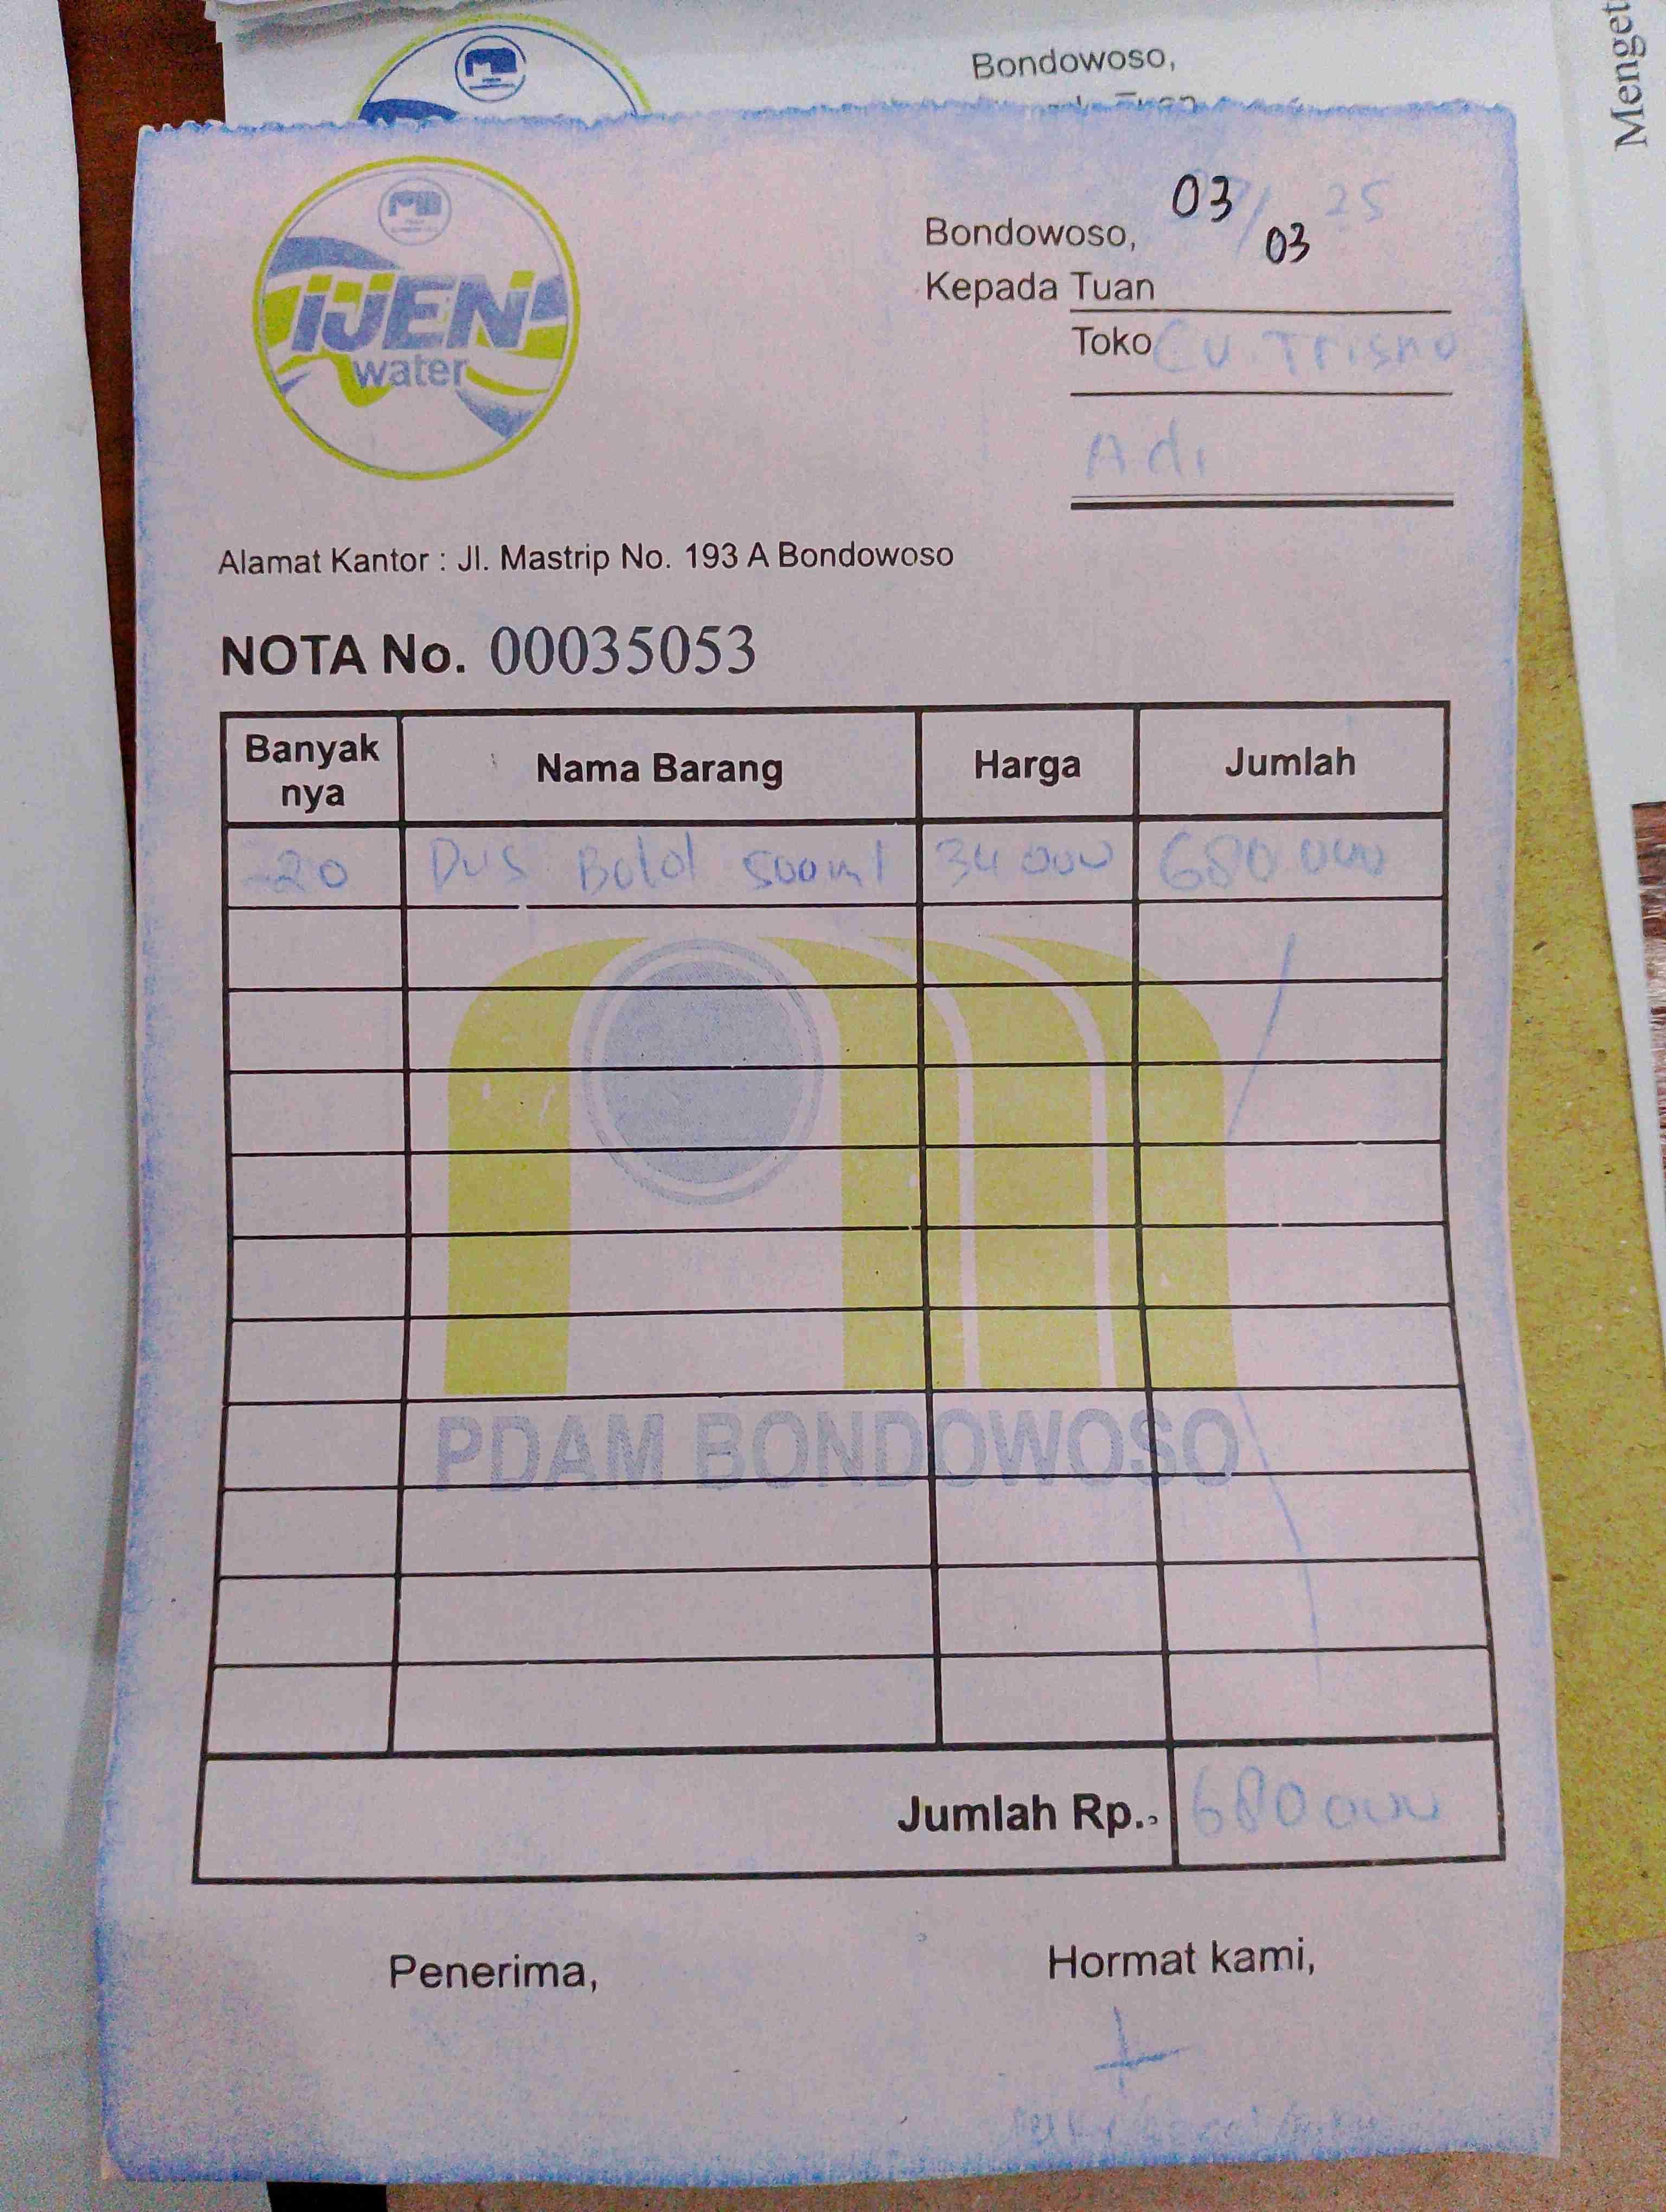 Bondowoso,
Menget
IJEN
water
Bondowoso, 03/03 25
Kepada Tuan
Toko CV. Trisno
Adi
Alamat Kantor : Jl. Mastrip No. 193 A Bondowoso
NOTA No. 00035053
Banyak nya Nama Barang Harga Jumlah
20 Dus Botol 500ml 34 000 680 000
PDAM BONDOWOSO
Jumlah Rp. 680 000
Penerima, Hormat kami,